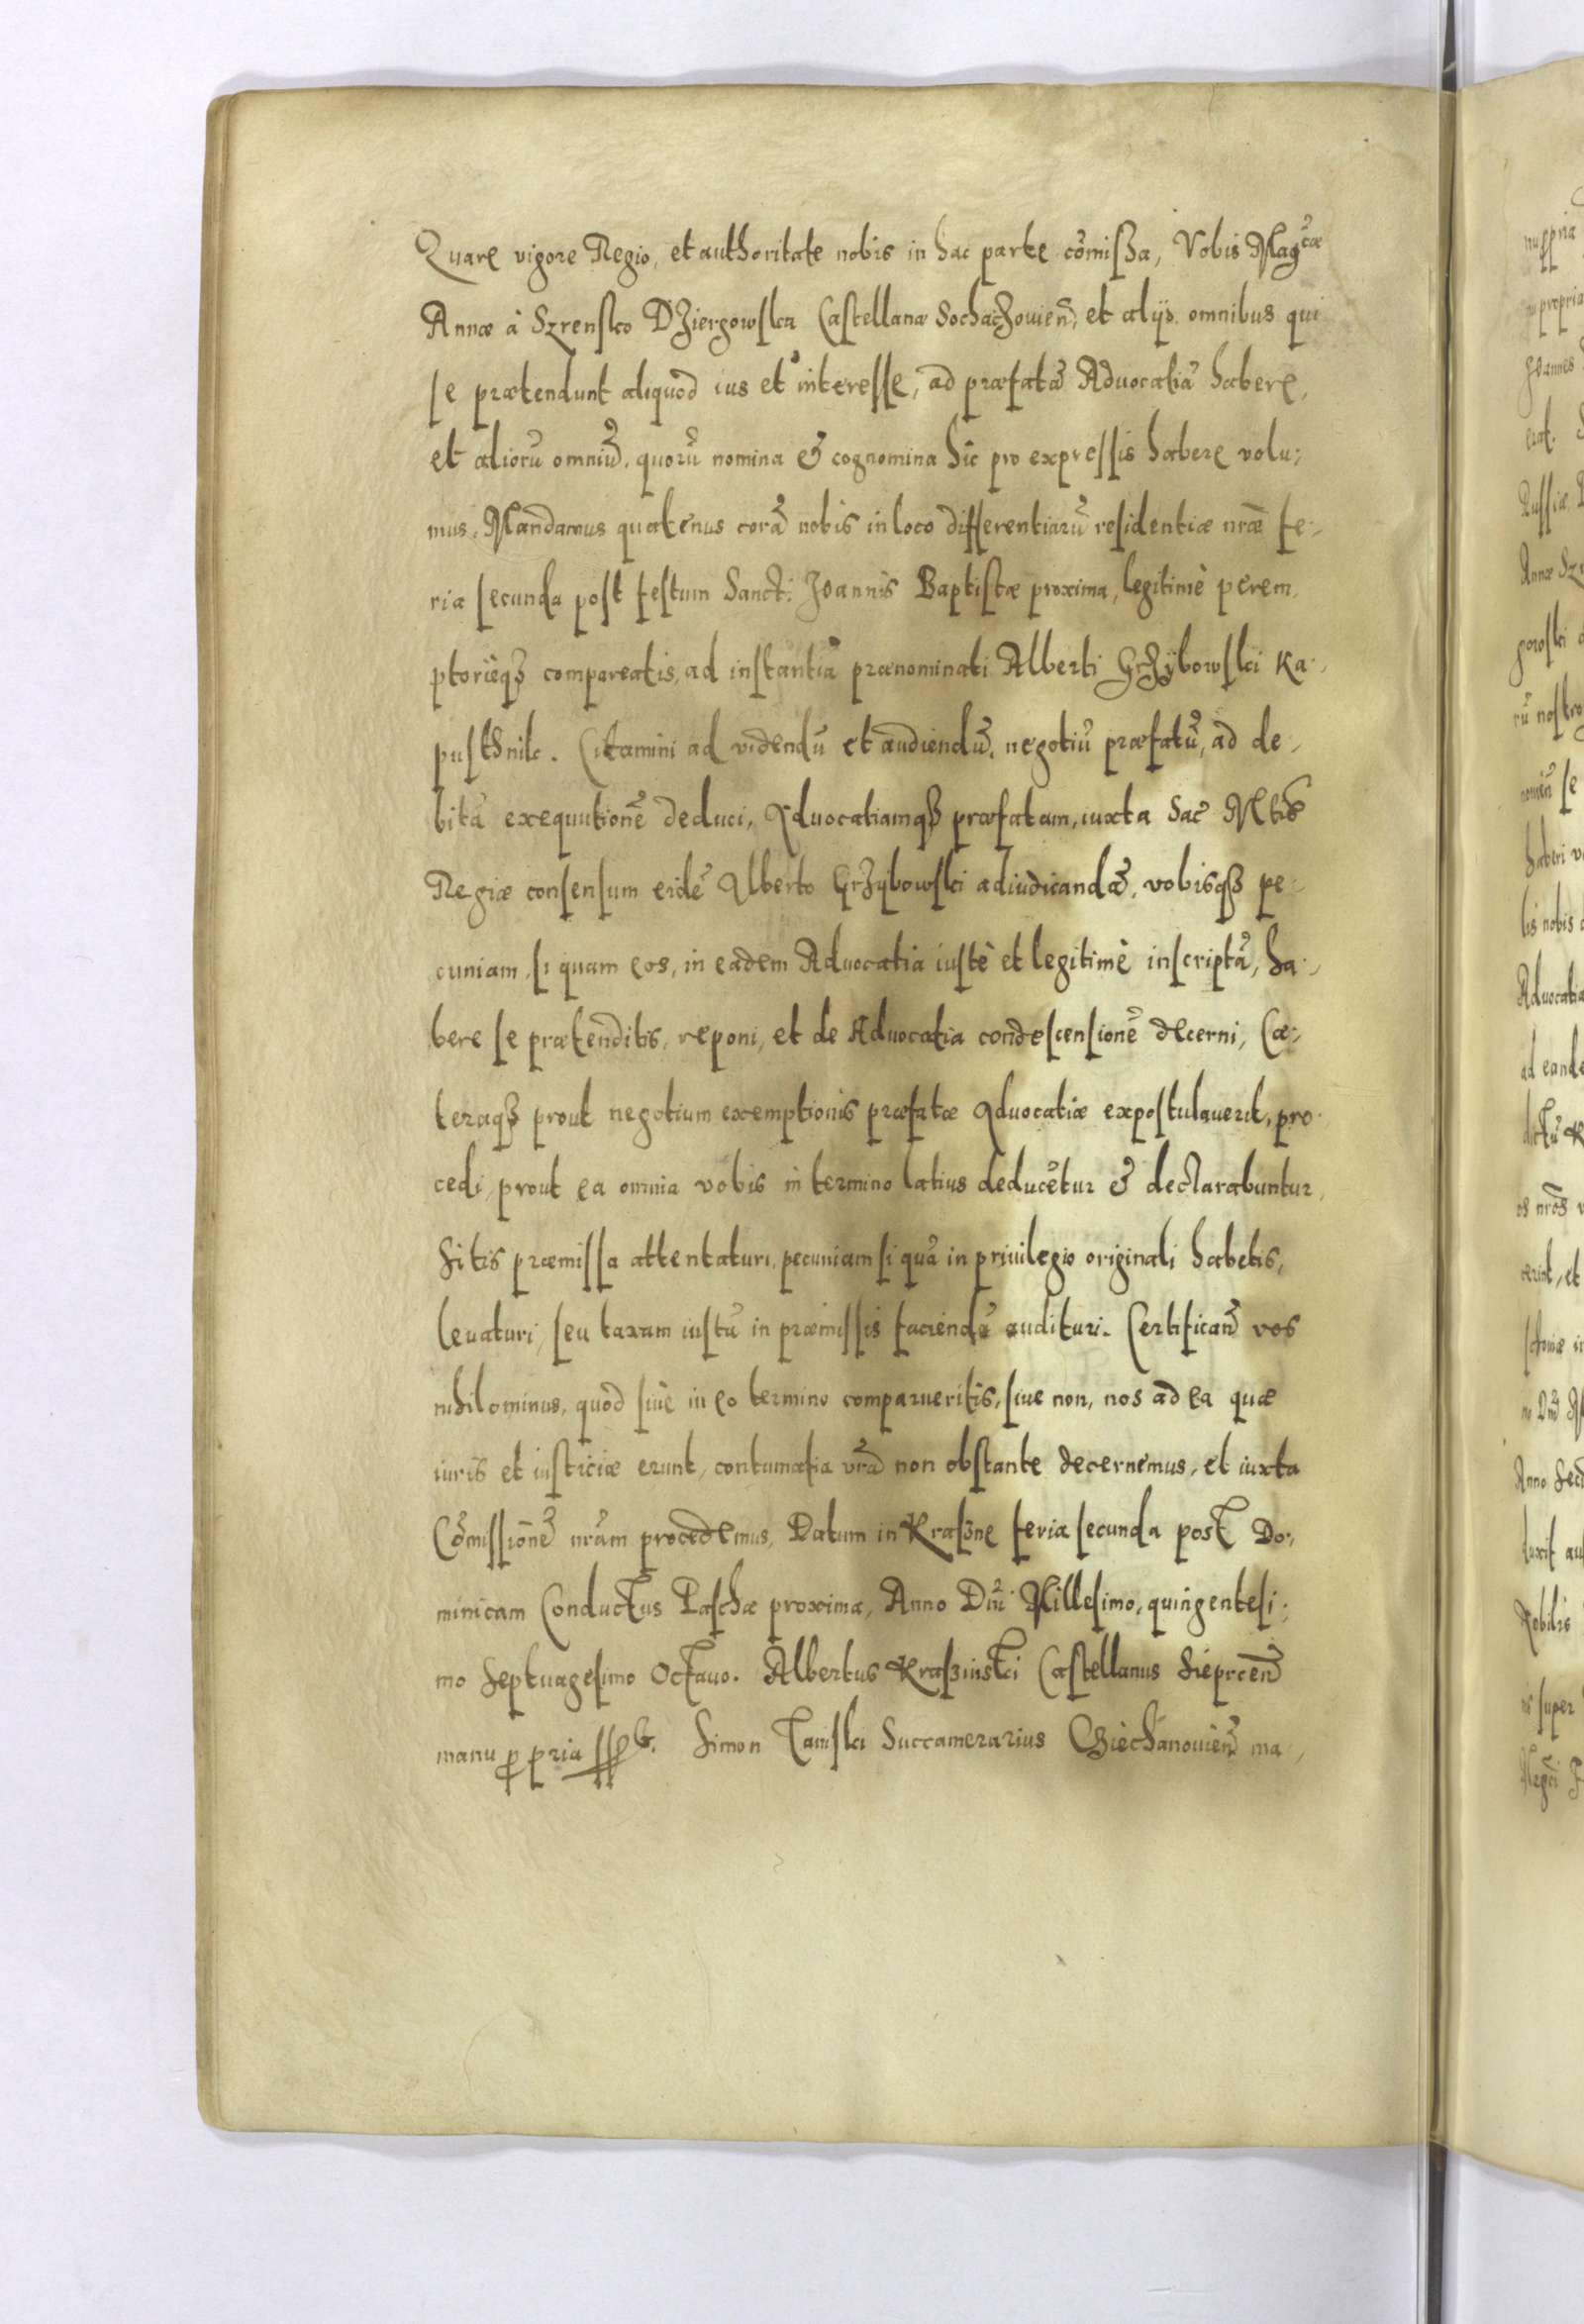 Quare vigore Regio, et authoritate nobis in hac parte cõmißa, Vobis Mag^cæ
Annæ à Szrensko Dziergowska Castellanæ Sochaczouien̄, et alijs omnibus qui
se prætendunt aliquod ius et interesse, ad præfatã Aduocatiã habere,
et aliorũ omniũ, quorũ nomina & cognomina hic pro expressis habere volu-
mus, Mandamus quatenus corã nobis in loco differentiarũ residentiæ nr̃æ fe-
ria secunda post festum Sancti Joannis Baptistæ proxima, legitimè perem
ptorieqȝ compareatis, ad instantiã prænominati Alberti Grzÿbowski Ka-
pusthnik. Citamini ad videndũ et audiendũ, negotiũ præfatũ, ad de-
bitã exequutionẽ deduci, Aduocatiamqȝ præfatam, iuxta Sac̃ Mtis
Regiæ consensum eidẽ Alberto Grzybowski adiudicandã, vobisqȝ pe-
cuniam, si quam eos, in eadem Aduocatia iustè et legitimè inscriptã, ha-
bere se prætenditis, reponi, et de Aduocatia condescensionẽ decerni, Cæ-
teraqȝ prout negotium exemptionis præfatæ Aduocatiæ expostulauerit, pro-
cedi, prout ea omnia vobis in termino latius deducẽtur & declarabuntur,
Sitis præmissa attentaturi, pecuniam si quã in priuilegio originali habetis,
leuaturi, seu taxam iustũ in præmissis faciendã audituri. Certifican̄ vos
nihilominus, quod siuè in eo termino comparueritis, siue non, nos ad ea quæ
iuris et iusticiæ erunt, contumatia vr̃a non obstante decernemus, et iuxta
Cõmissionẽ nr̃am procedemus, Datum in Kraßne feria secunda post Do-
minicam Conductus Paschæ proxima, Anno Dñi Millesimo, quingentesi-
mo Septuagesimo Octauo. Albertus Kraßinski Castellanus Sieprcen̄
manu ꝓpria sst. Simon Tamski Succamerarius Cziechanouien̄ ma-